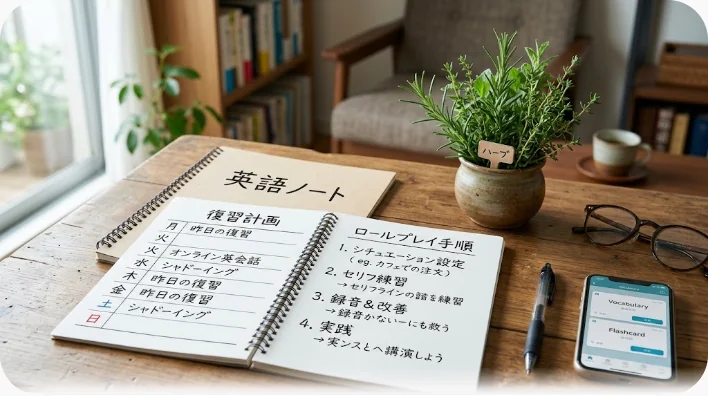 英語ノート
復習計画
月 昨日の復習
火
火 オンライン英会話
水 シャドーイング
木 昨日の復習
金 昨日の復習
土 シャドーイング
日
ロールプレイ手順
1. シチュエーション設定
(eg.カフェでの注文)
2. セリフ練習
→セリフラインの諳を練習
3. 録音&改善
→録音かない一にも救う
4. 実践
→実ンスとへ講演しよう
ハーブ
Vocabulary
Flashcard